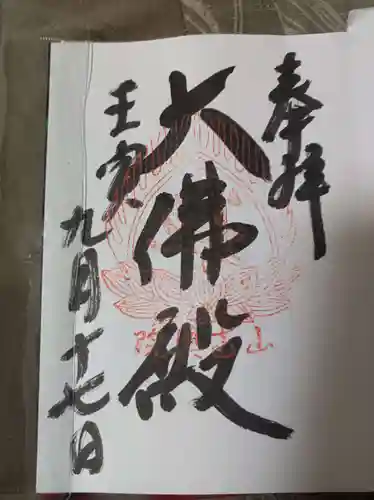 奉拝
大佛殿
壬寅
九月十七日